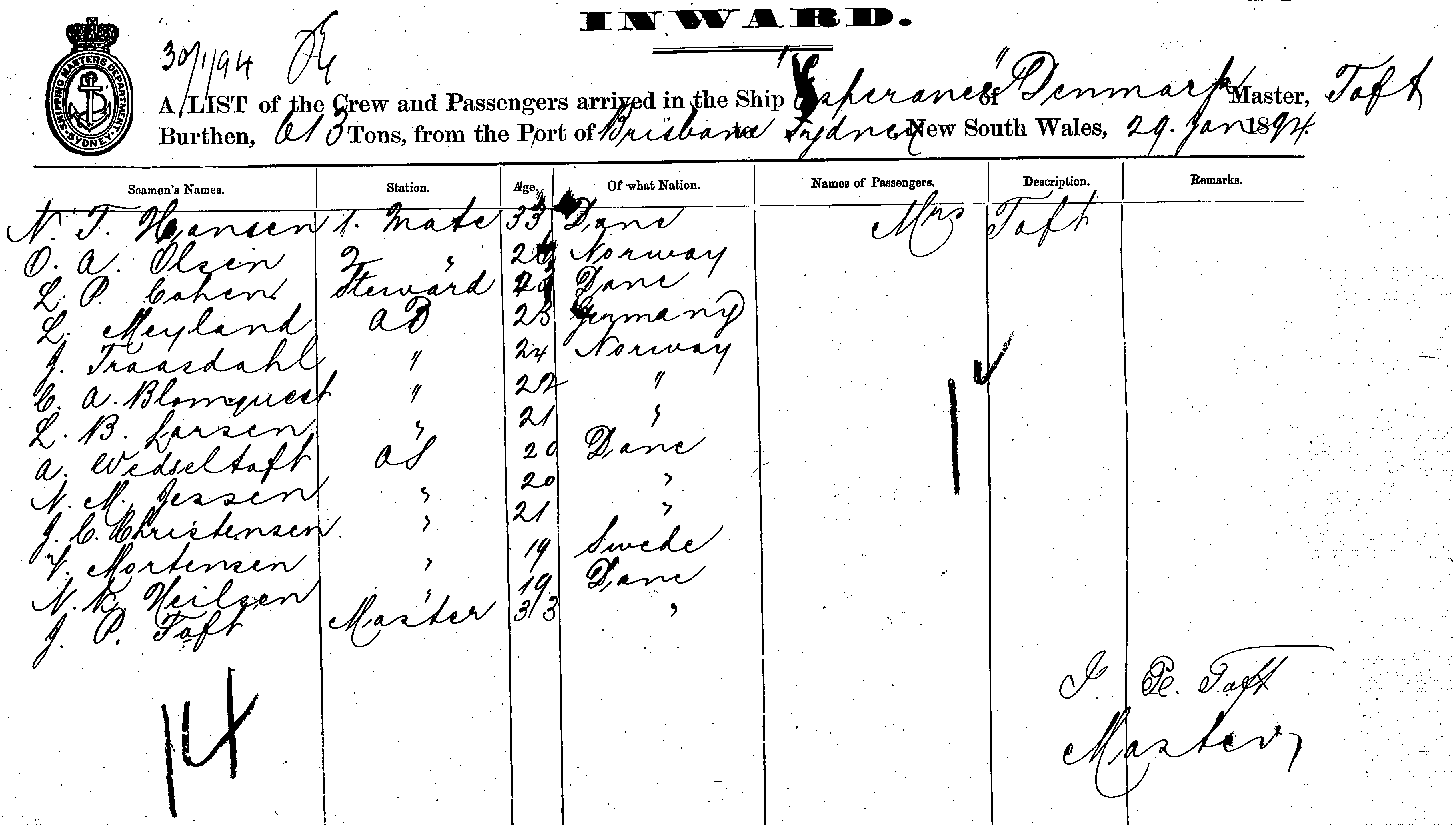 INWARD.
30/1/94
SHIPPING MASTERS DEPARTMENT SYDNEY
A LIST of the Crew and Passengers arrived in the Ship "Esperance" of Denmark Master, Taft
Burthen, 613 Tons, from the Port of Brisbane to Sydney New South Wales, 29. Jan 1894.
Seamen's Names. Station. Age. Of what Nation. Names of Passengers. Description. Remarks.
N. T. Hansen 1. Mate 33 Dane Mrs Taft
O. A. Olsen 2 " Norway
L. P. Cohen Steward Dane
L. Meyland AB 23 Germany
J. Traasdahl " 24 Norway
C. A. Blomquest " 22 "
L. B. Larsen " 21 "
A. Wedseltaft OS 20 Dane
N. M. Jessen " 20 "
J. C. Christensen " 21 "
V. Mortensen " 19 Swede
N. K. Neilsen " 19 Dane
J. P. Taft Master 33 "
14
1
J. Pe. Taft
Master